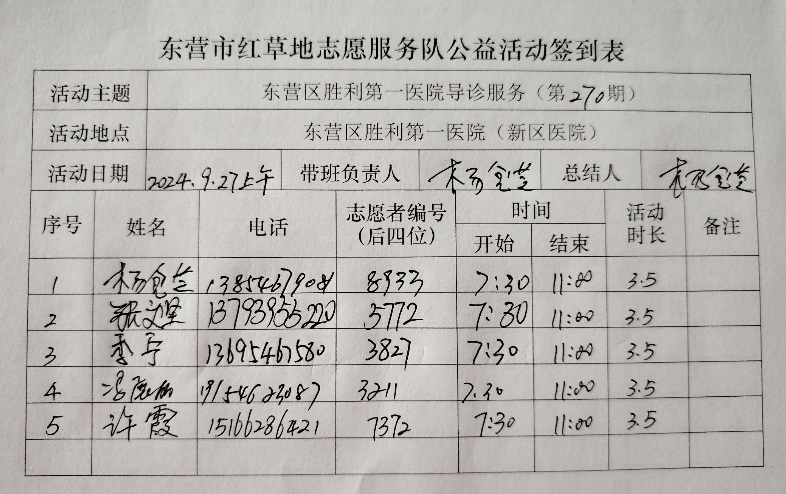 东营市红草地志愿服务队公益活动签到表
活动主题 东营区胜利第一医院导诊服务（第270期）
活动地点 东营区胜利第一医院（新区医院）
活动日期 2024.9.27上午 带班负责人 杨金芝 总结人 杨金芝
序号 姓名 电话 志愿者编号（后四位） 时间 开始 结束 活动时长 备注
1 杨金芝 8933 7:30 11:00 3.5
2 13793955220 5772 7:30 11:00 3.5
3 李宁 13695467580 3827 7:30 11:00 3.5
4 3211 7.30 11:00 3.5
5 许霞 15166286421 7372 7:30 11:00 3.5